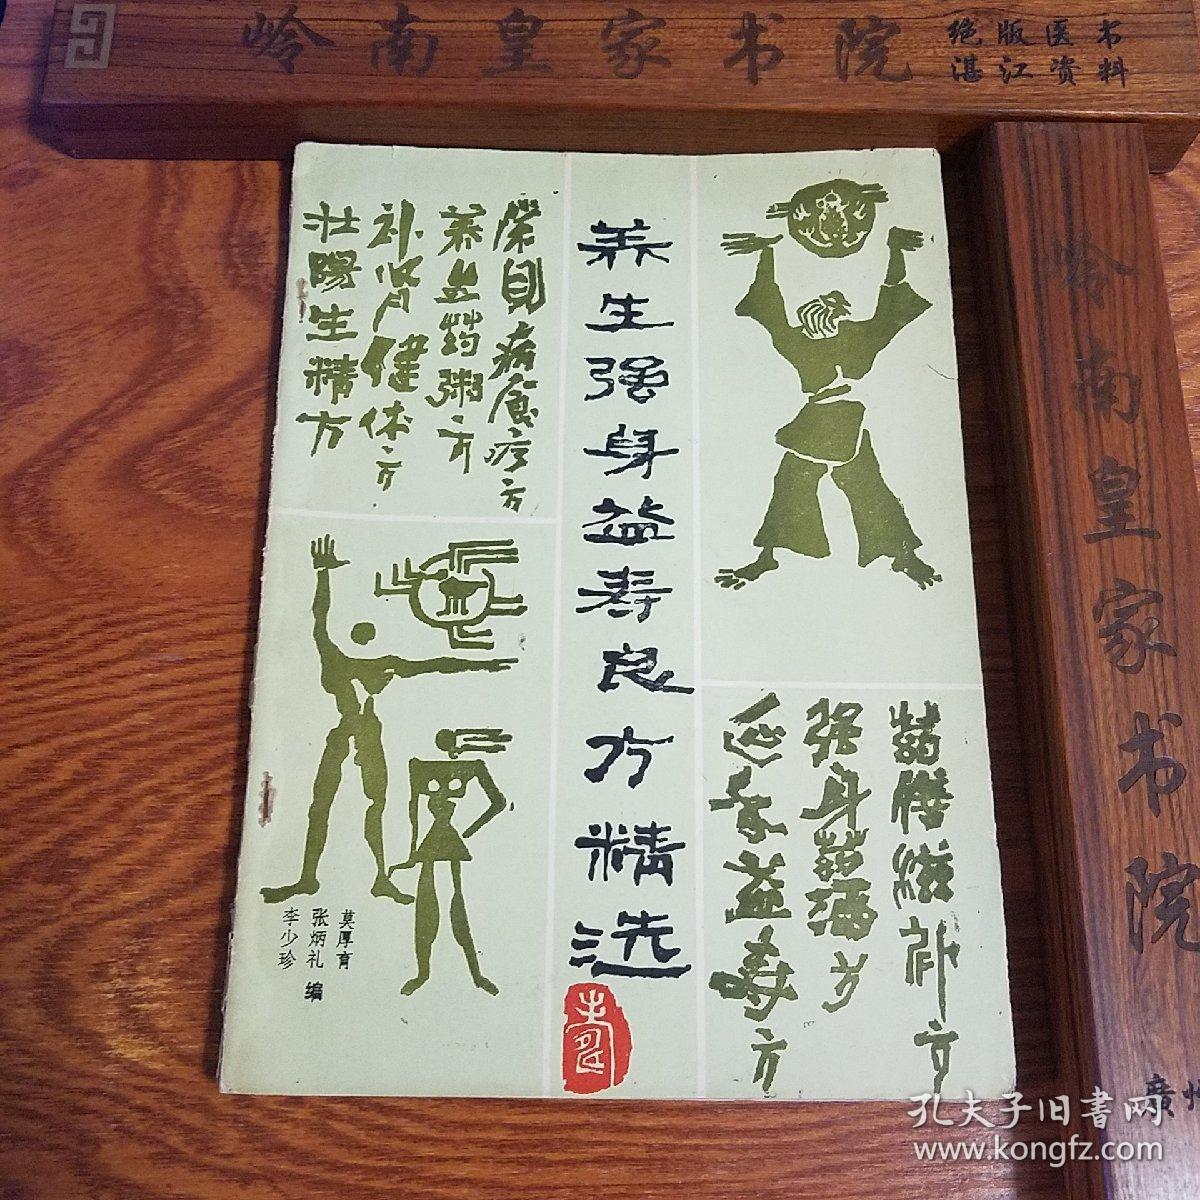 岭南皇家书院
绝版医书
湛江资料
养生强身益寿良方精选
常见病食疗方
养生药粥方
补肾健体方
壮陽生精方
药膳滋补方
强身药酒方
延年益寿方
莫厚育
张炳礼 编
李少珍
岭南皇家书院
廣州
孔夫子旧書网
www.kongfz.com